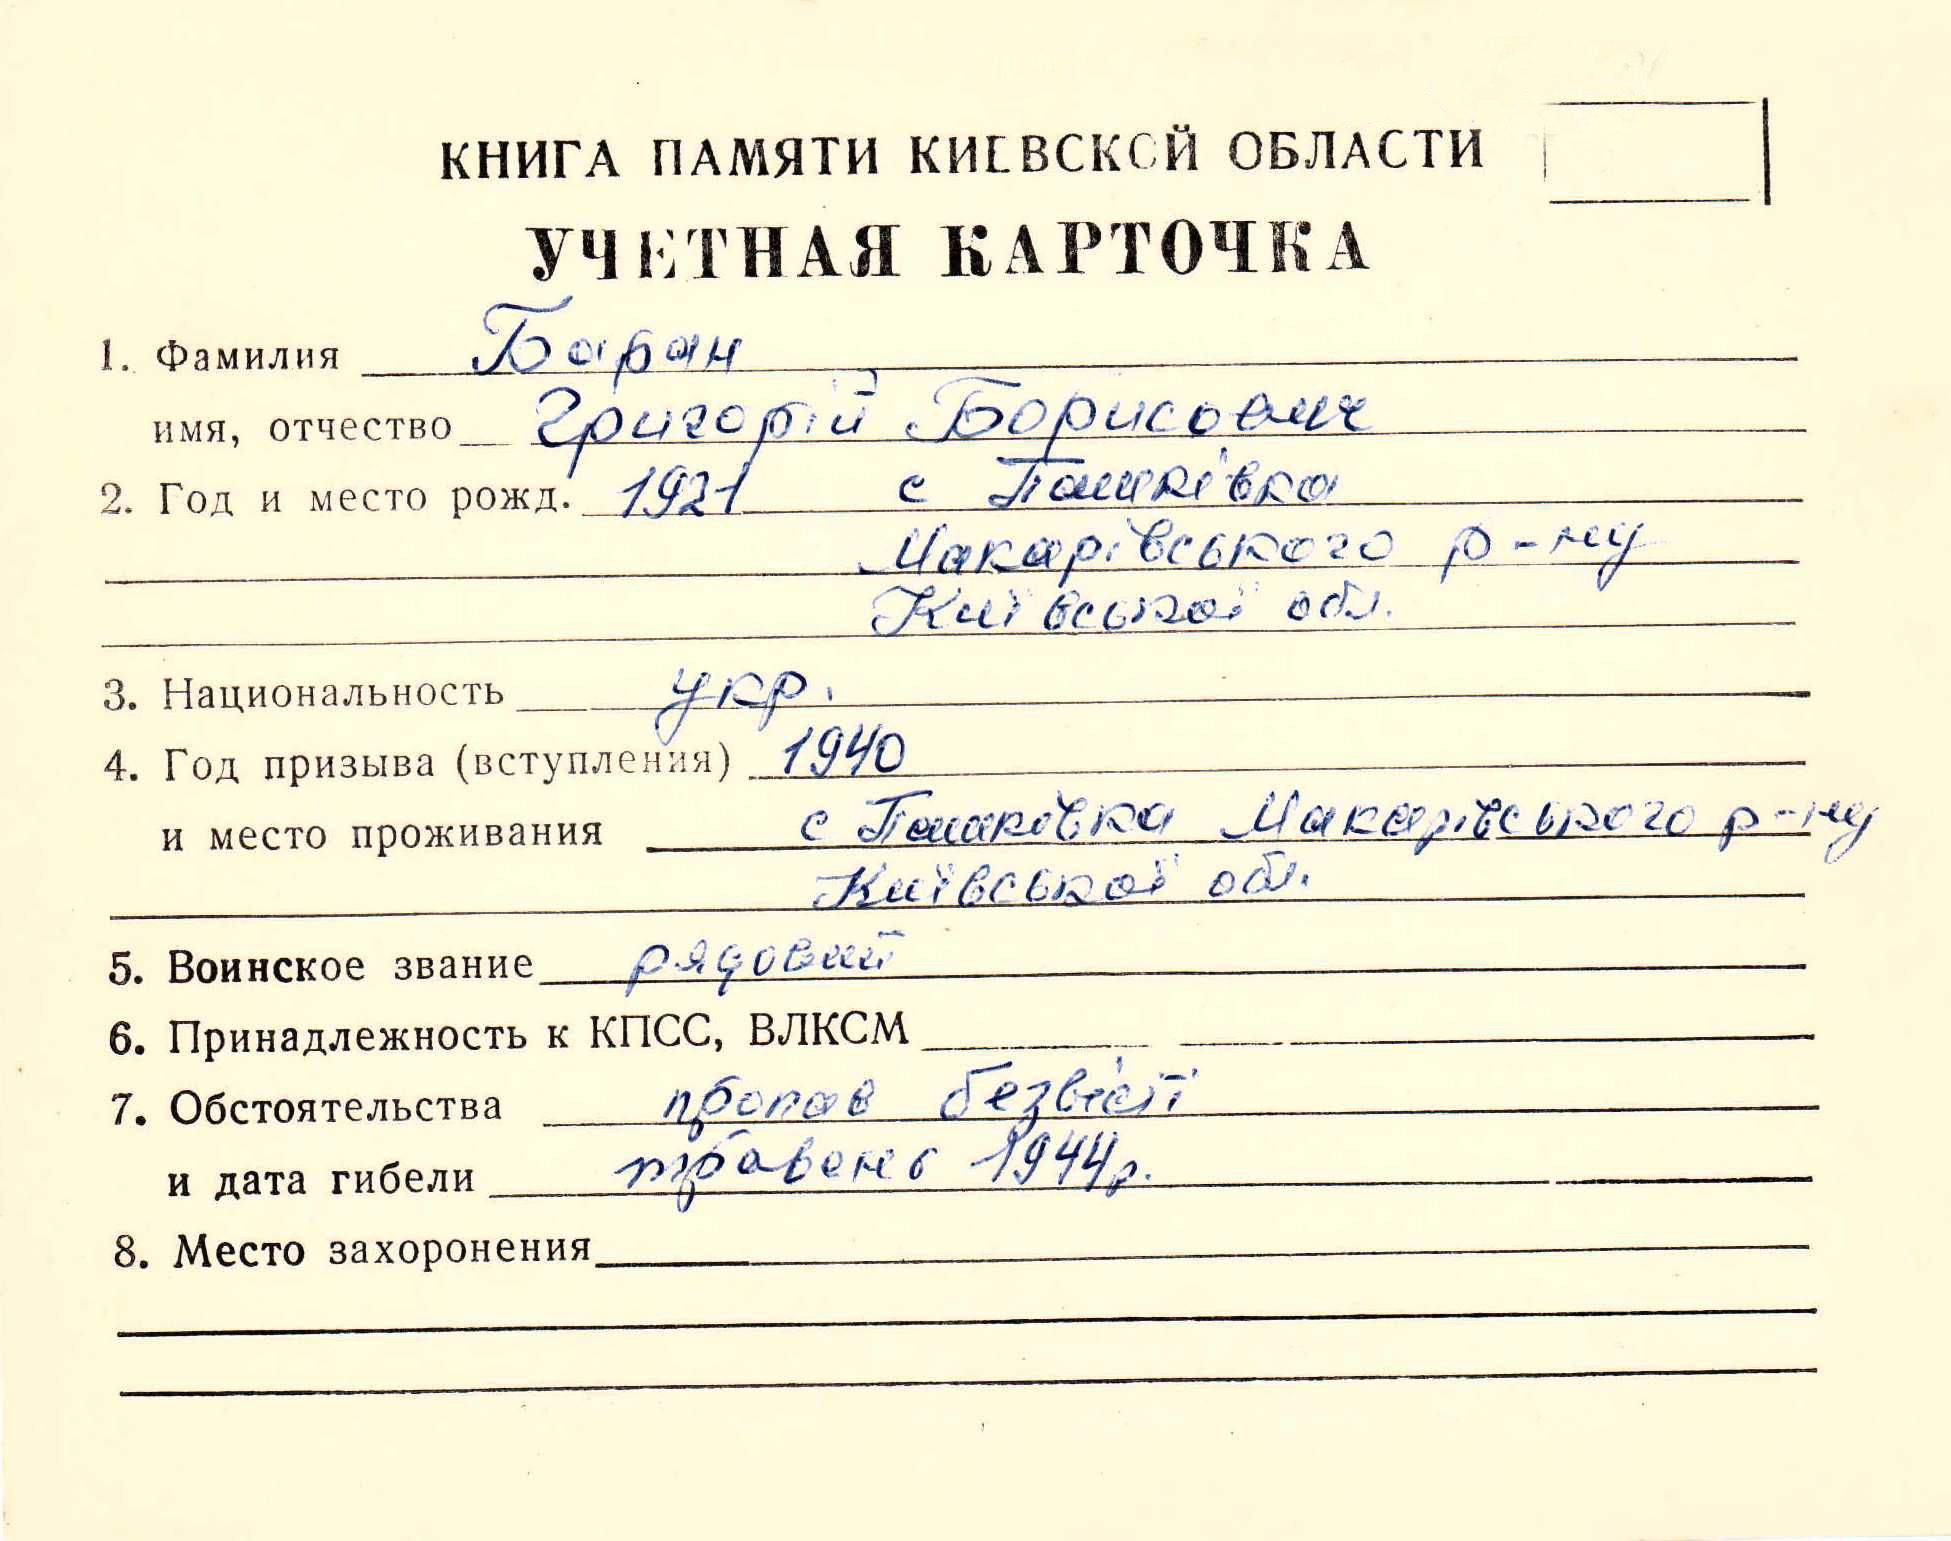 КНИГА ПАМЯТИ КИЕВСКОЙ ОБЛАСТИ
УЧЕТНАЯ КАРТОЧКА
1. Фамилия Баран
имя, отчество Григорій Борисович
2. Год и место рожд. 1921 с Пашківка
Макарівського р-ну
Київської обл.
3. Национальность укр.
4. Год призыва (вступления) 1940
и место проживания с Пашківка Макарівського р-ну
Київської обл.
5. Воинское звание рядовий
6. Принадлежность к КПСС, ВЛКСМ
7. Обстоятельства пропав безвісті
и дата гибели травень 1944р.
8. Место захоронения